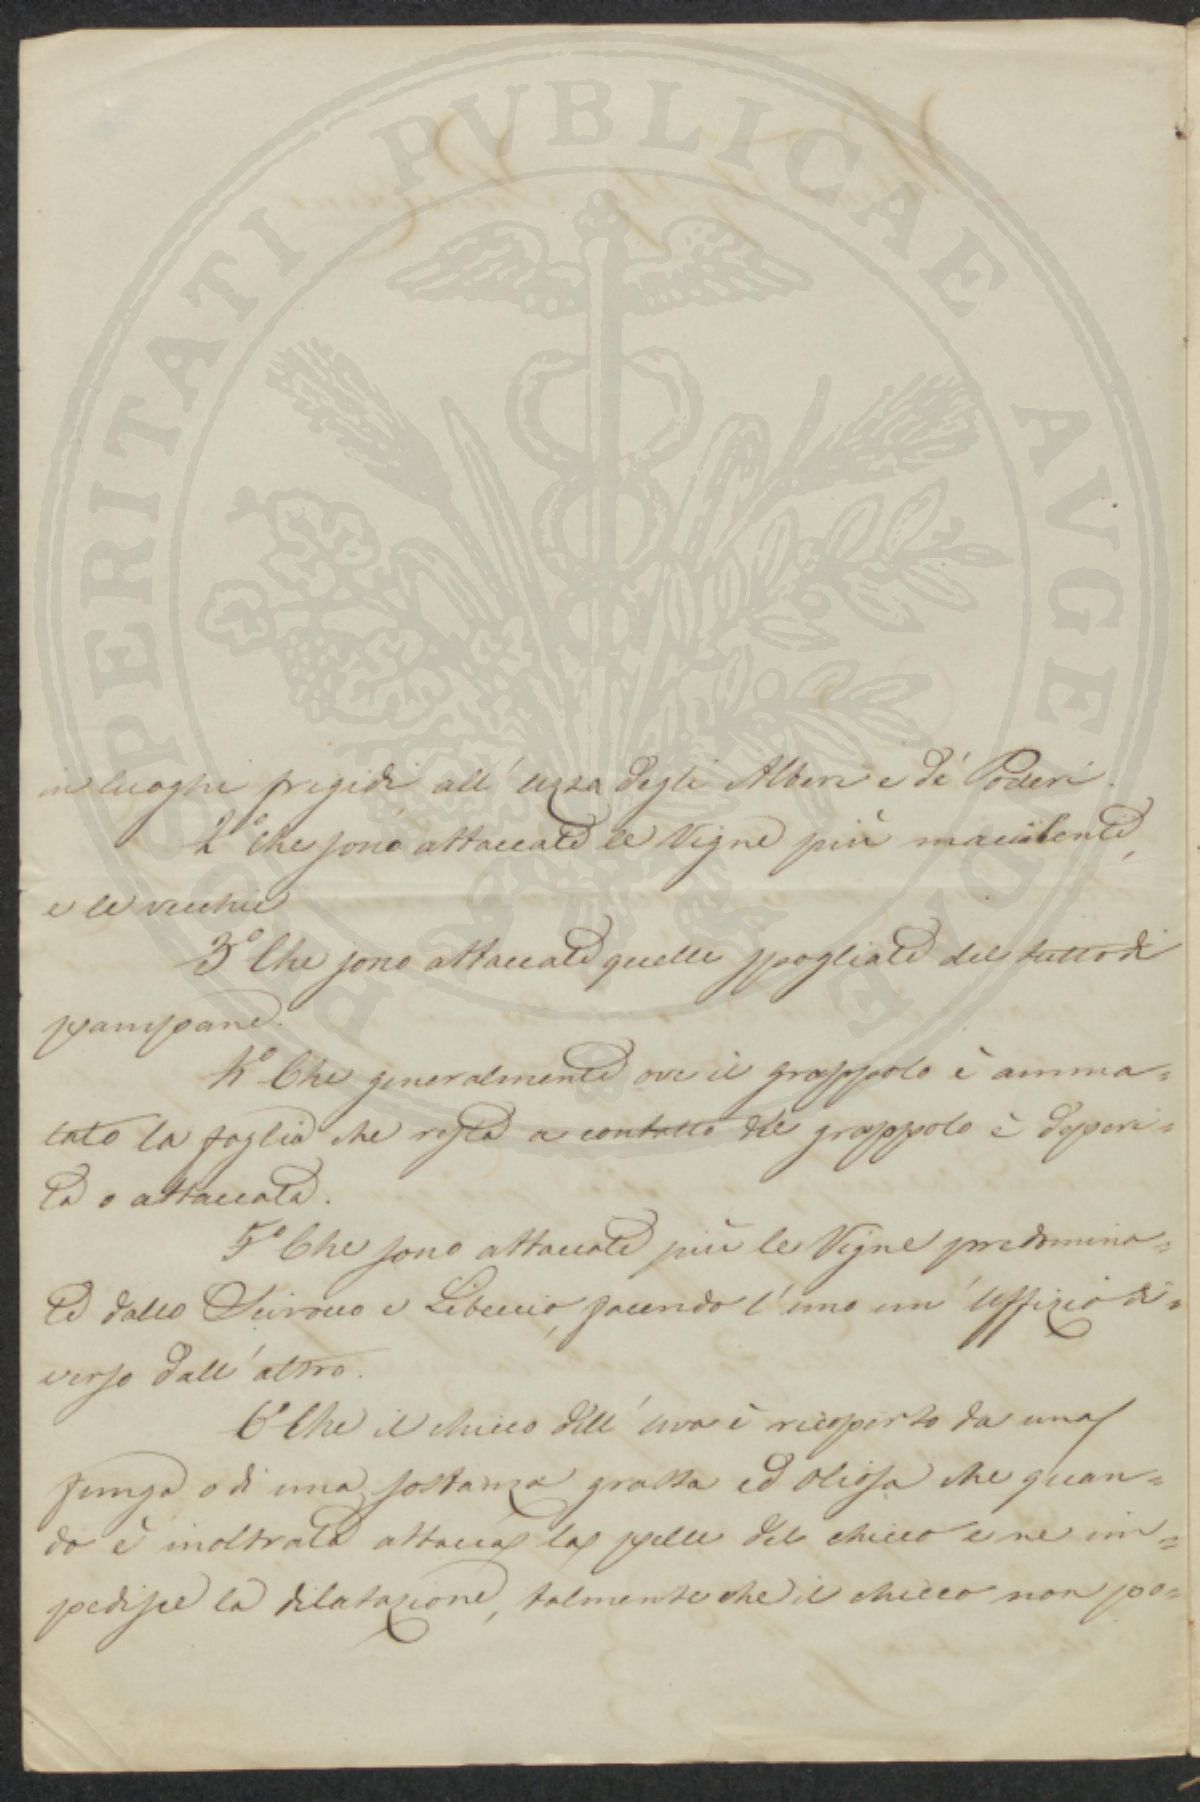 PROSPERITATI PUBLICAE AVGENDAE
in luoghi frigidi all'uzza degli Alberi e de' Poderi.
2° Che sono attaccate le Vigne più macilente,
e le vecchie
3° Che sono attaccate quelle spogliate del tutto di
pampane.
4° Che generalmente ove il grappolo è amma-
lato la foglia che resta a contatto del grappolo è deperi-
ta o attaccata.
5° Che sono attaccate più le Vigne predomina-
te dallo Scirocco e Libeccio, facendo l'uno un' Uffizio di-
verso dall' altro.
6° Che il chicco dell' uva è ricoperto da una
funga o di una sostanza grassa ed oliosa che quan-
do è inoltrata attacca la pelle del chicco e ne im-
pedisce la dilatazione, talmente che il chicco non po-